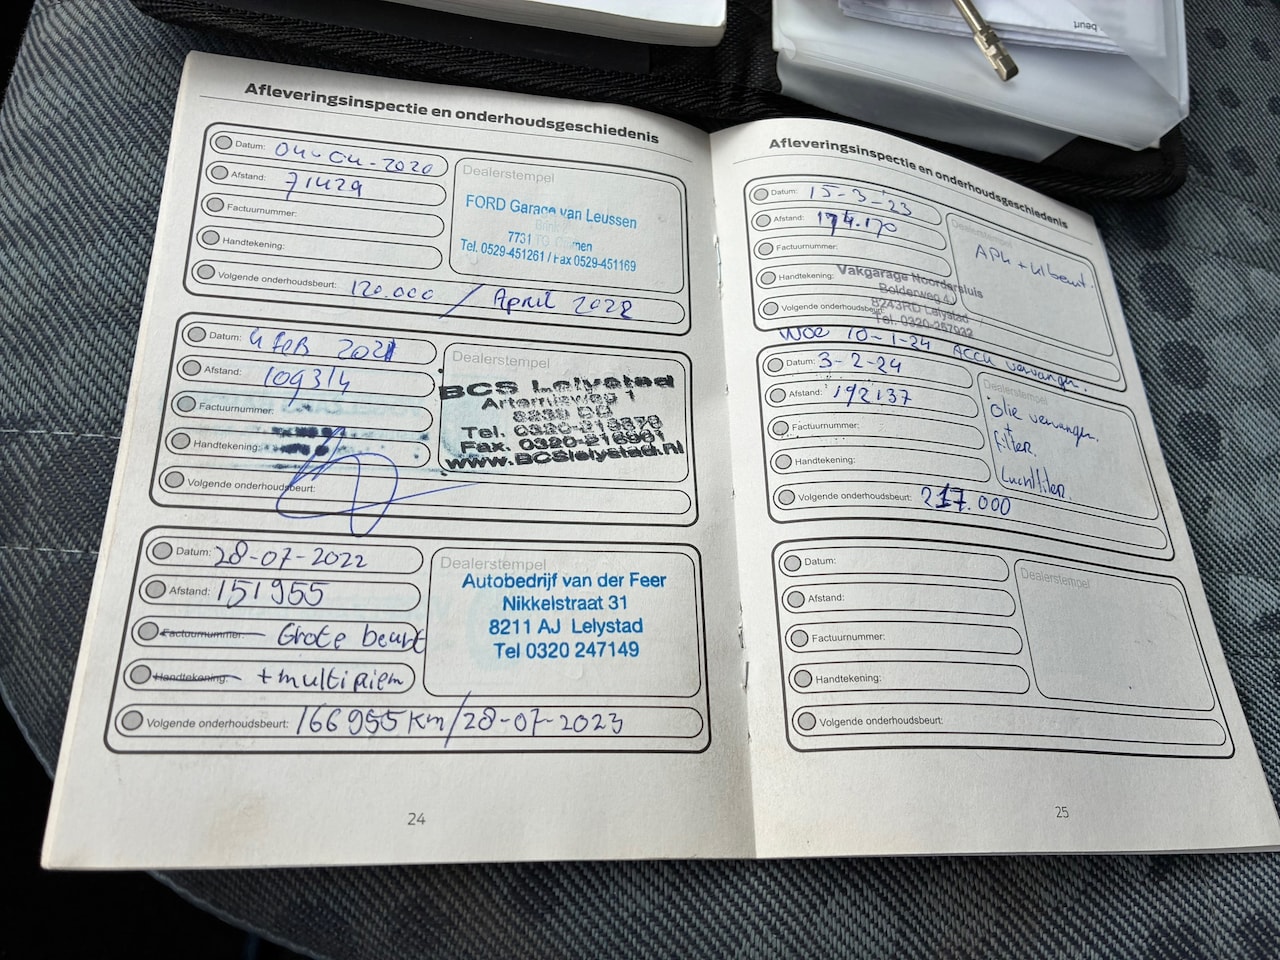 beurt
Afleveringsinspectie en onderhoudsgeschiedenis
Datum: 04-04-2020
Afstand: 71429
Factuurnummer:
Handtekening:
Volgende onderhoudsbeurt: 120.000 / April 2022
Dealerstempel
FORD Garage van Leussen
7731
Tel. 0529-451261 / Fax 0529-451169
Datum: 4 feb 2021
Afstand: 109314
Factuurnummer:
Handtekening:
Volgende onderhoudsbeurt:
Dealerstempel
BCS Lelystad
Artemisweg 1
Tel.
Fax.
www.BCSlelystad.nl
Datum: 28-07-2022
Afstand: 151955
Factuurnummer: Grote beurt
Handtekening: + multiriem
Volgende onderhoudsbeurt: 166955 km/28-07-2023
Dealerstempel
Autobedrijf van der Feer
Nikkelstraat 31
8211 AJ Lelystad
Tel 0320 247149
24
Afleveringsinspectie en onderhoudsgeschiedenis
Datum: 15-3-23
Afstand: 174.170
Factuurnummer:
Handtekening:
Volgende onderhoudsbeurt:
Dealerstempel
APK + kl beurt.
Vakgarage Noordersluis
Bolderweg 4
8243RD Lelystad
Tel. 0320-257932
Woe 10-1-24 Accu vervangen.
Datum: 3-2-24
Afstand: 192137
Factuurnummer:
Handtekening:
Volgende onderhoudsbeurt: 217.000
Dealerstempel
olie vervangen.
+
filter.
Luchtfilter.
Datum:
Afstand:
Factuurnummer:
Handtekening:
Volgende onderhoudsbeurt:
Dealerstempel
25